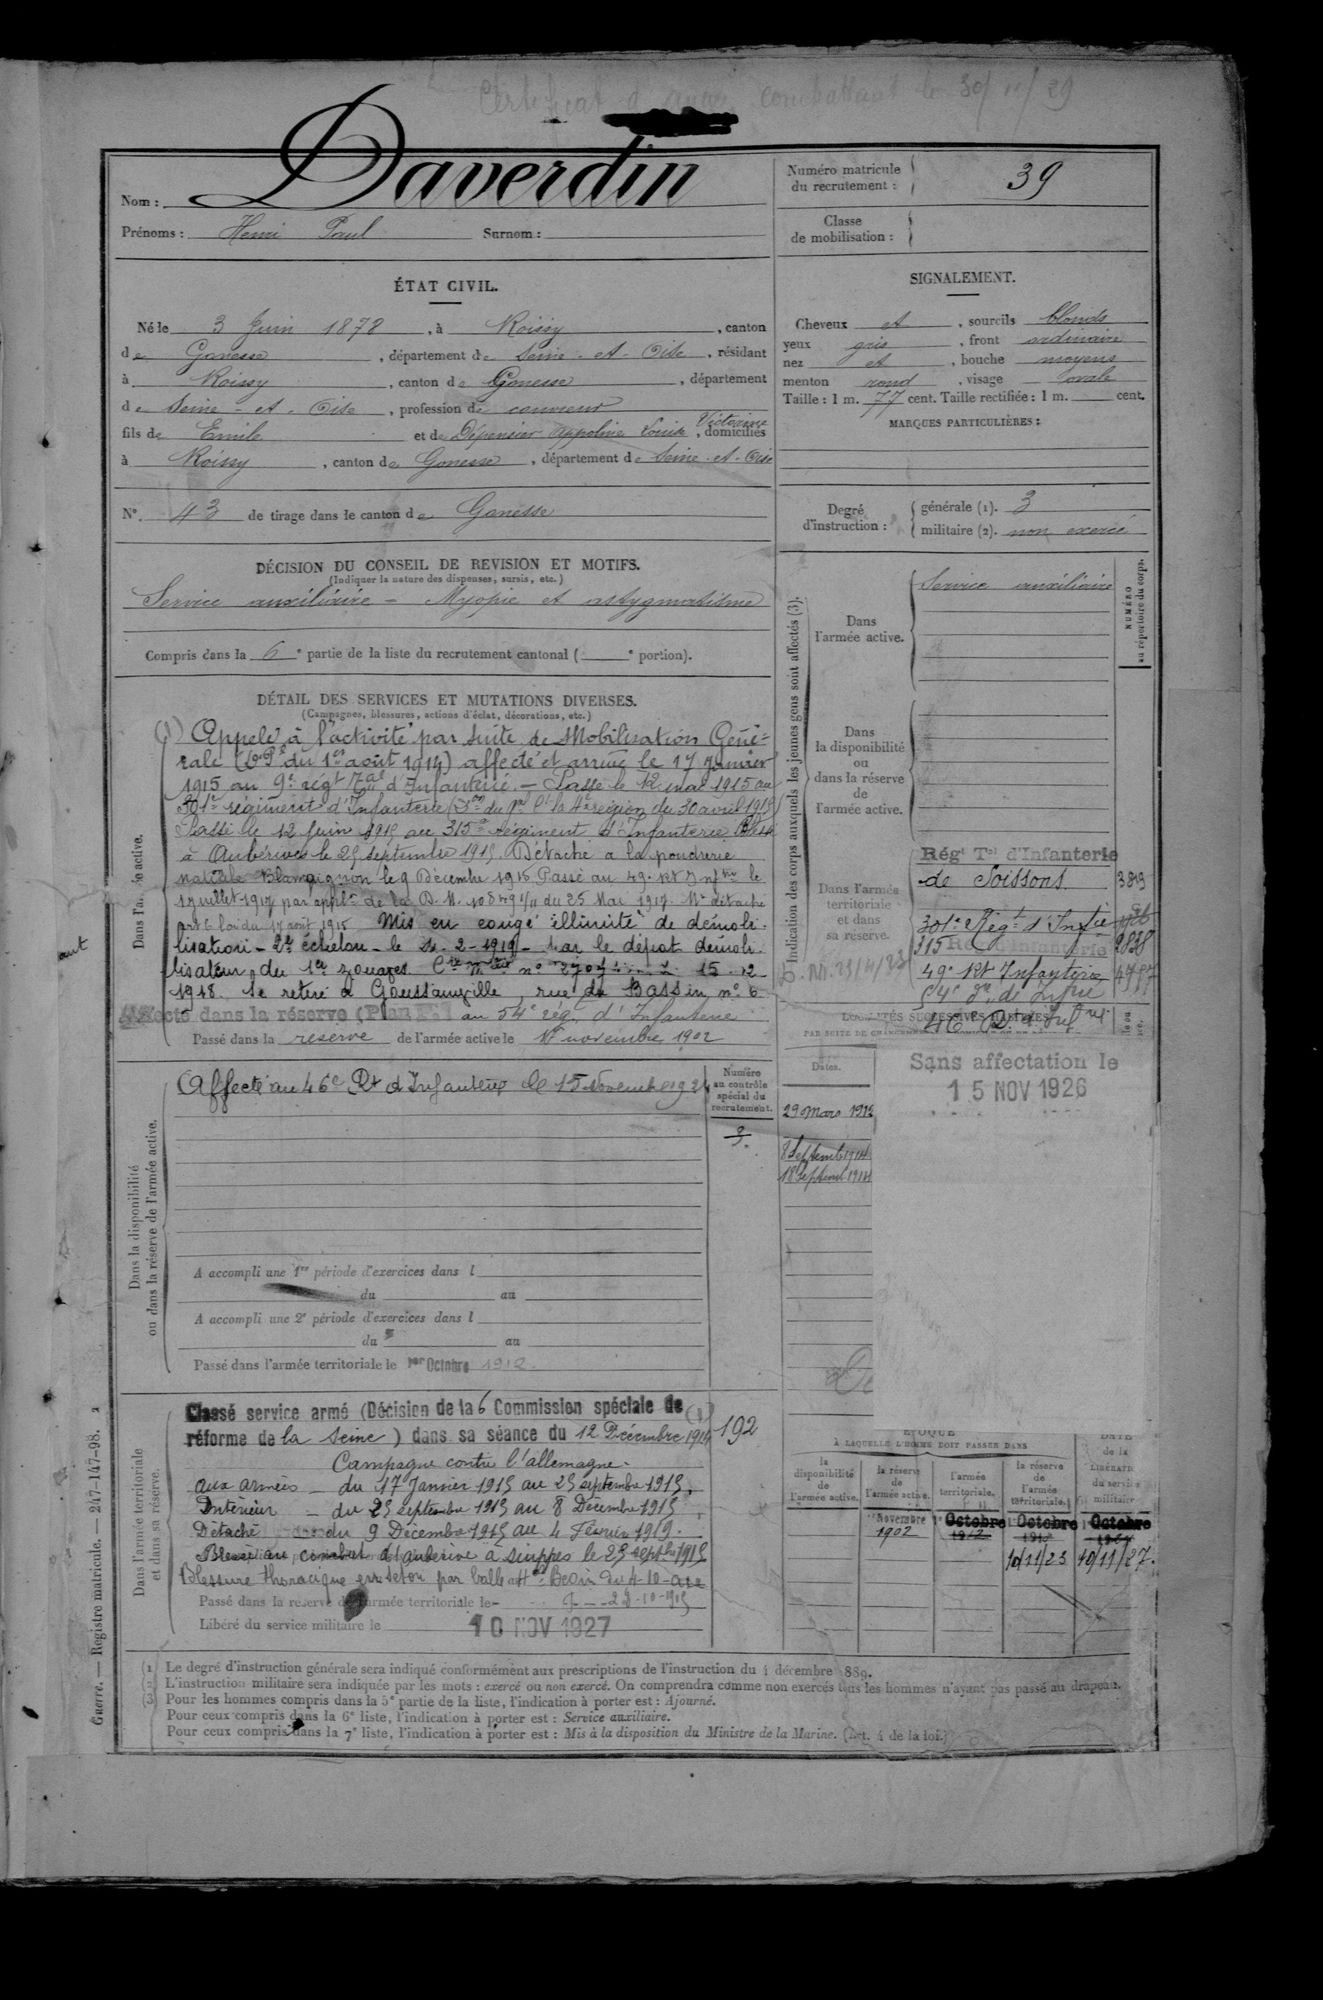 Certificat d'ancien combattant le 30/11/29
Nom : Daverdin
Prénoms : Henri Paul Surnom :
ÉTAT CIVIL.
Né le 3 Juin 1878, à Roissy, canton
de Gonesse, département de Seine-et-Oise, résidant
à Roissy, canton de Gonesse, département
de Seine-et-Oise, profession de couvreur
fils de Emile et de Dépensier Appoline Louise Victorine, domiciliés
à Roissy, canton de Gonesse, département de Seine-et-Oise
N° 43 de tirage dans le canton de Gonesse
DÉCISION DU CONSEIL DE REVISION ET MOTIFS.
(Indiquer la nature des dispenses, sursis, etc.)
Service auxiliaire - Myopie et astygmatisme
Compris dans la 6e partie de la liste du recrutement cantonal ( e portion).
DÉTAIL DES SERVICES ET MUTATIONS DIVERSES.
(Campagnes, blessures, actions d'éclat, décorations, etc.)
Dans l'armée active.
(1) Appelé à l'activité par suite de Mobilisation Géné-
rale ( du 1er août 1914) affecté et arrivé le 17 Janvier
1915 au 9e régt Tal d'Infanterie. - Passé le 12 mai 1915 au
301e régiment d'Infanterie ( du Gal Ct la 4e région du 30 avril 1915)
Passé le 12 Juin 1915 au 315e régiment d'Infanterie Blessé
à Aubérive le 25 septembre 1915. Détaché a la poudrerie
nationale Blampignon le 9 Décembre 1915 Passé au 49e Rt Inftrie le
1 juillet 1917 par applon de la D.M. du 25 Mai 1917. Mt détaché
art 6 loi du 17 août 1915 Mis en congé illimité de démobi-
lisation - 2e échelon - le 4-2-1919 - par le dépot démobi-
lisateur du 1er zouaves. 15-12
1918. Se retire à Goussainville, rue du Bassin n° 6
Affecté dans la réserve (Plan ) au 54e rég. d'Infanterie
Passé dans la réserve de l'armée active le 1er novembre 1902
Dans la disponibilité
ou dans la réserve de l'armée active.
Affecté au 46e Rt d'Infanterie le 15 Novembre
A accompli une 1re période d'exercices dans l
du au
A accompli une 2e période d'exercices dans l
du au
Passé dans l'armée territoriale le 1er Octobre 1912.
Numéro
au contrôle
spécial du
recrutement.
Dans l'armée territoriale
et dans sa réserve.
Classé service armé (Décision de la 6 Commission spéciale de (1)
réforme de la Seine) dans sa séance du 12 Décembre 1914
192
Campagne contre l'allemagne.
aux armées - du 17 Janvier 1915 au 25 septembre 1915,
Intérieur - du 25 septembre 1915 au 8 Décembre 1915,
Détaché du 9 Décembre 1915 au 4 Février 1919.
Blessé au combat d'auberive à suippes le 25 septbre 1915
Blessure thoracique en seton par balle
Passé dans la réserve de l'armée territoriale le
Libéré du service militaire le 10 NOV 1927
Numéro matricule
du recrutement : 39
Classe
de mobilisation :
SIGNALEMENT.
Cheveux et, sourcils blonds
yeux gris, front ordinaire
nez et, bouche moyens
menton rond, visage ovale
Taille : 1 m. 77 cent. Taille rectifiée : 1 m. cent.
MARQUES PARTICULIÈRES :
Degré
d'instruction :
générale (1). 3
militaire (2). non exercé
Indication des corps auxquels les jeunes gens sont affectés (3).
NUMÉRO
au répertoire du corps.
Dans
l'armée active.
Service auxiliaire
Dans
la disponibilité
ou
dans la réserve
de
l'armée active.
Dans l'armée
territoriale
et dans
sa réserve.
Régt Tal d'Infanterie
de Soissons 3819
301e Régt d'Inftie
315 Regt d'Infanterie 2838
49e Rt Infanterie
54e Rt de Inftrie
46e Rt d'Inftrie
Dates.
29 mars 1912
8 Septemb 1914
18 Septemb 1914
Sans affectation le
15 NOV 1926
ÉPOQUE
À LAQUELLE L'HOMME DOIT PASSER DANS
la
disponibilité
de
l'armée active.
la réserve
de
l'armée active.
l'armée
territoriale.
la réserve
de
l'armée
territoriale.
DATE
de la
LIBÉRATION
du service
militaire
1er Novembre
1902
1er Octobre
1912
Octobre
10/11/23
Octobre
10/11/27.
(1) Le degré d'instruction générale sera indiqué conformément aux prescriptions de l'instruction du 4 décembre 1889.
(2) L'instruction militaire sera indiquée par les mots : exercé ou non exercé. On comprendra comme non exercés tous les hommes n'ayant pas passé au drapeau.
(3) Pour les hommes compris dans la 5e partie de la liste, l'indication à porter est : Ajourné.
Pour ceux compris dans la 6e liste, l'indication à porter est : Service auxiliaire.
Pour ceux compris dans la 7e liste, l'indication à porter est : Mis à la disposition du Ministre de la Marine. (Art. 4 de la loi.)
Guerre. — Registre matricule. — 247-147-98. 2